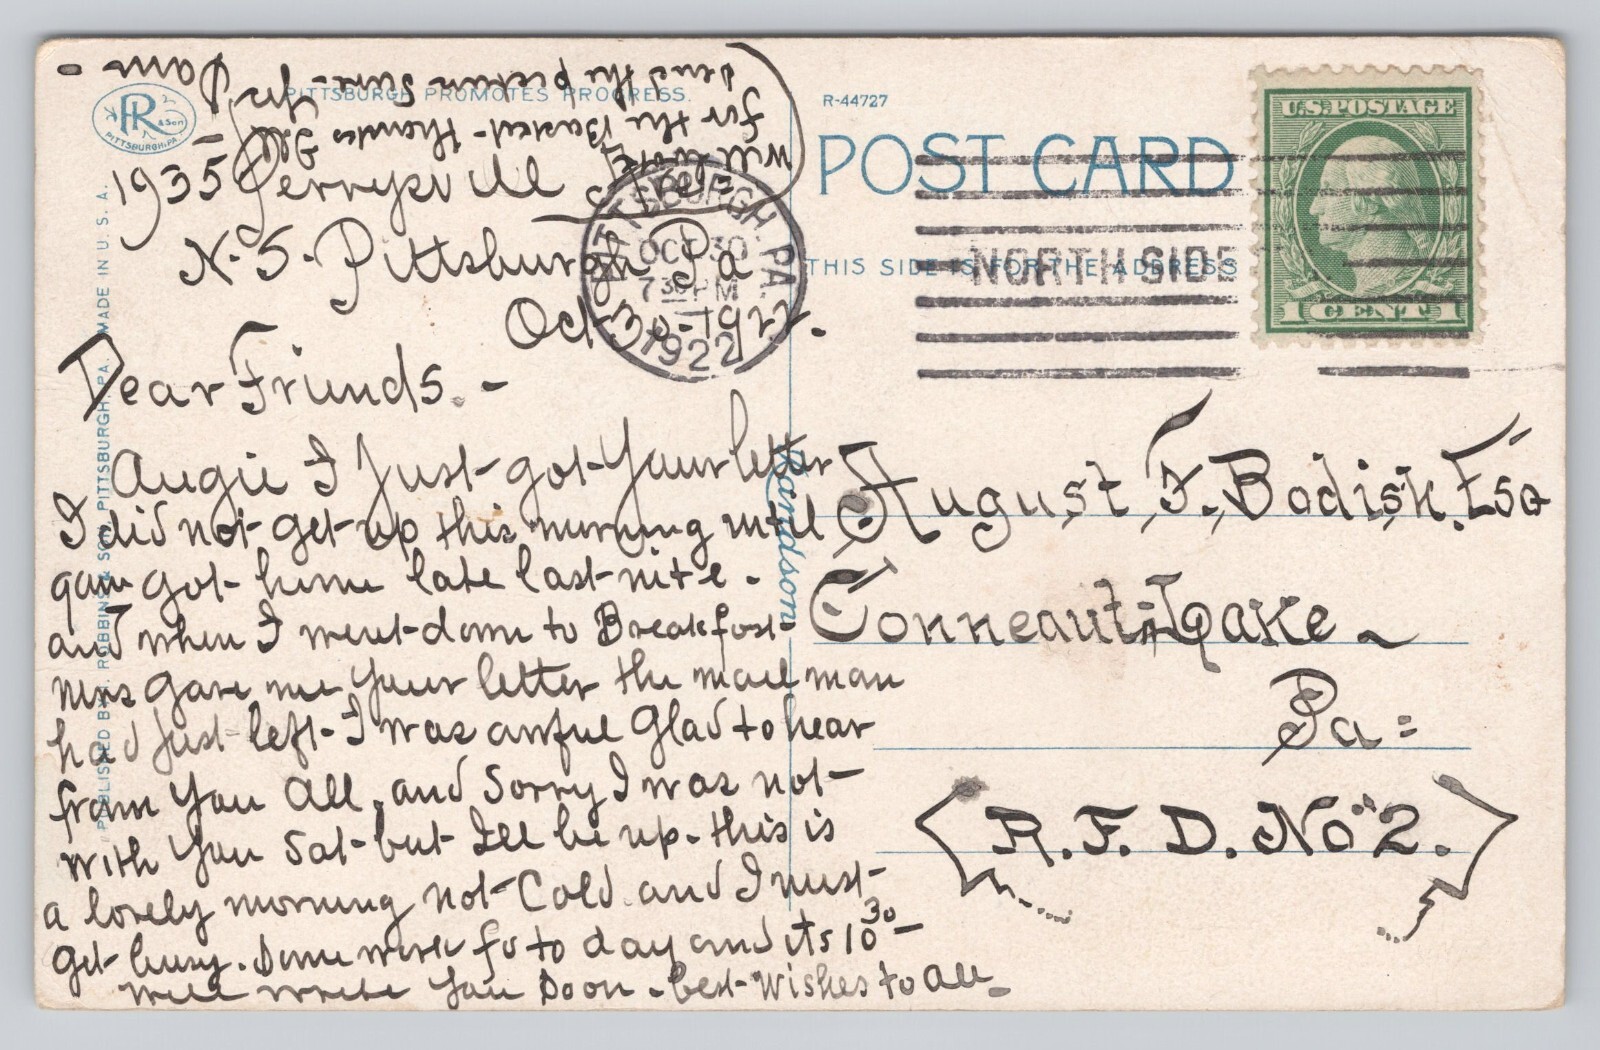 PITTSBURGH PROMOTES PROGRESS.
R & Son
PITTSBURGH, PA.
R-44727
POST CARD
THIS SIDE IS FOR THE ADDRESS
U.S. POSTAGE
1 CENT 1
PITTSBURGH, PA.
OCT 30
7 30 PM
1922
NORTH SIDE
PUBLISHED BY I. ROBBINS & SON, PITTSBURGH, PA. MADE IN U. S. A.
1935 Perrysville
N.S. Pittsburgh Pa
Oct-30-1922.
Dear Friends. -
Augie I Just-got-Your letter
I did not-get-up this morning until
9am got-home late last-nite.
and when I went-down to Breakfast-
Mrs gave me Your letter the mail man
had Just-left-I was awful Glad to hear
from You All. and Sorry I was not-
with You Sat-but-Ill be up. this is
a lovely morning not-Cold. and I must-
get-busy. Some work for to day and its 10 30 -
will write You Soon. best-Wishes to All-
will
for the Basket-thanks Ill
send the picture Sure-
Yrs
Sam -
August F. Bodisk. Esq
Conneaut-Lake
Pa=
R. F. D. No "2.
Randson